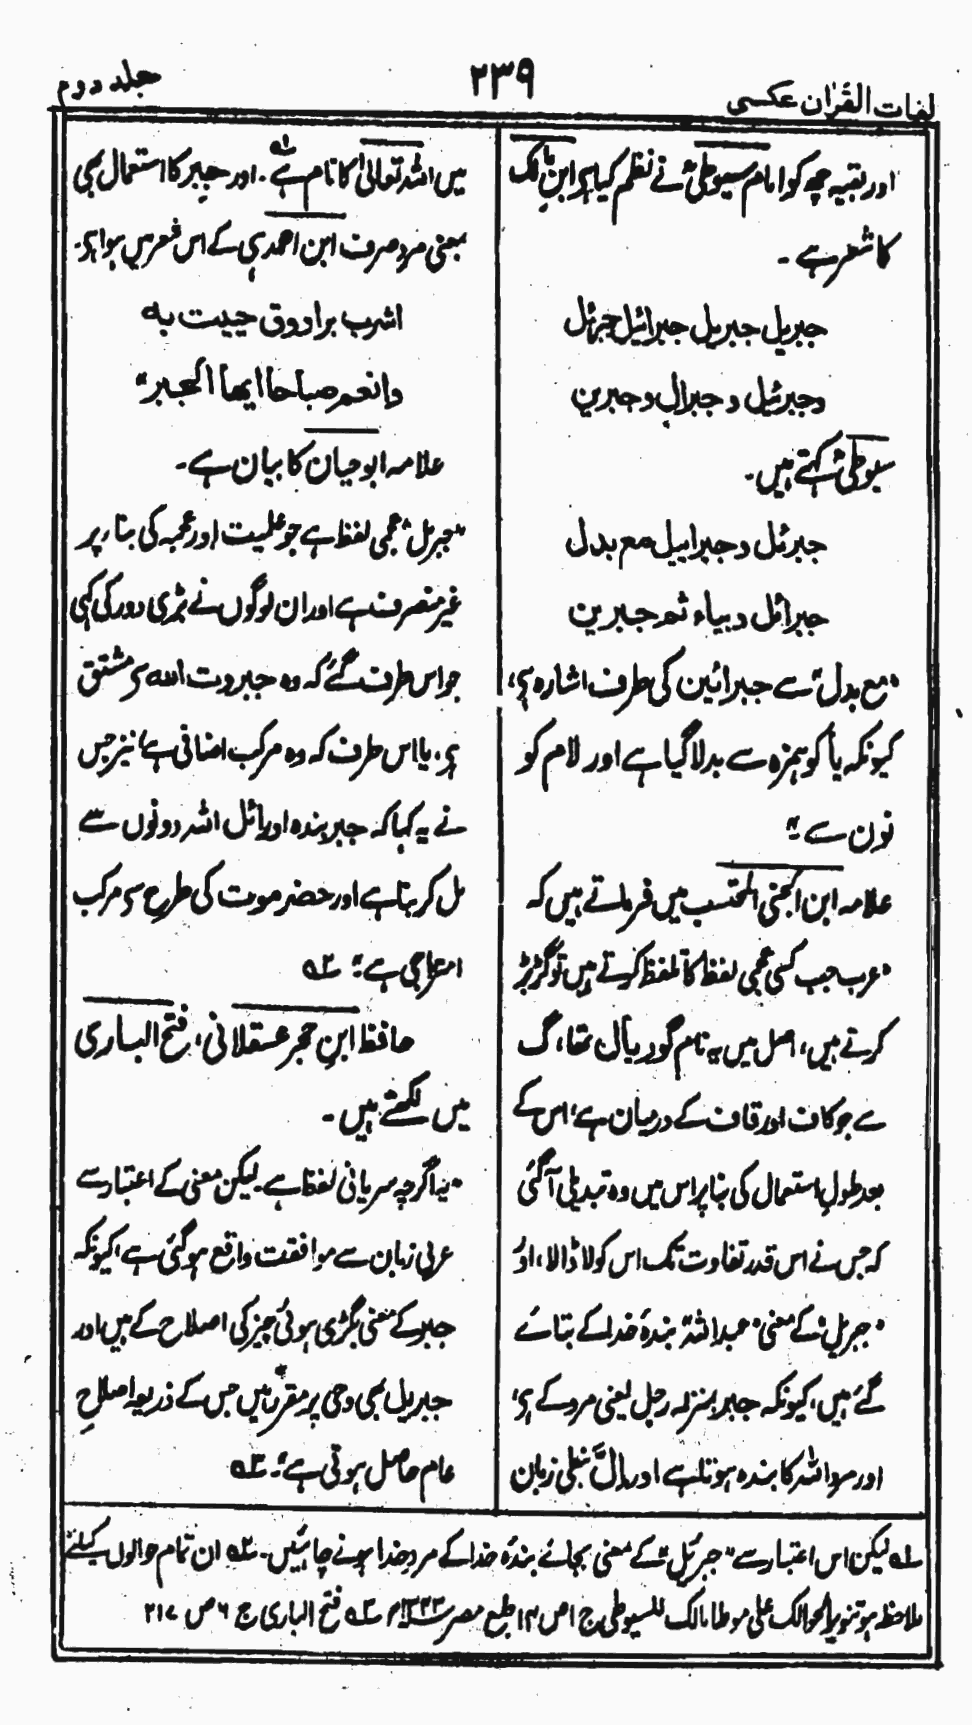 لغات القرآن عکسی
۲۳۹
جلد دوم
اور بقیہ چھ کو امام سیوطیؒ نے نظم کیا ہے، ابن مالک
کا شعر ہے۔
جبریل جبریل جبرائیل جبرئل
وجبرئیل وجبرال وجبرین
سیوطیؒ کہتے ہیں۔
جبرئل وجبراییل مع بدل
جبرائل وبیاء ثم جبرین
"مع بدل" سے جبرائین کی طرف اشارہ ہے،
کیونکہ یا کو ہمزہ سے بدلا گیا ہے اور لام کو
نون سے"
علامہ ابن الجنی المحتسب میں فرماتے ہیں کہ
"عرب جب کسی عجمی لفظ کا تلفظ کرتے ہیں تو گڑبڑ
کرتے ہیں، اصل میں یہ نام گوریال تھا، گ
سے جو کاف اور قاف کے درمیان ہے، اس کے
بعد طول استعمال کی بنا پر اس میں وہ تبدیلی آگئی
کہ جس نے اس قدر تفاوت تک اس کو لا ڈالا، اور
"جبریل" کے معنی "عبد اللہ" بندۂ خدا کے بتائے
گئے ہیں، کیونکہ جبر بمنزلہ رجل یعنی مرد کے ہے،
اور سو اللہ کا بندہ ہوتا ہے اور اِلّ نبطی زبان
میں اللہ تعالیٰ کا نام ہے لہ۔ اور جبر کا استعمال بھی
بمعنی مرد صرف ابن احمر ہی کے اس شعر میں ہوا ہے۔
اشرب براووق حییت به
وانعم صباحا ایها الجبر"
علامہ ابو حیان کا بیان ہے۔
"جبریل" عجمی لفظ ہے جو علمیت اور عجمہ کی بنا پر
غیر منصرف ہے اور ان لوگوں نے بڑی دور کی کہی
جو اس طرف گئے کہ وہ جبروت اللہ سے مشتق
ہے، یا اس طرف کہ وہ مرکب اضافی ہے، نیز جس
نے یہ کہا کہ جبر بندہ اور ائل اللہ دونوں سے
مل کر بنا ہے اور حضرموت کی طرح سے مرکب
امتزاجی ہے" ۲ہ
حافظ ابن حجر عسقلانی، فتح الباری
میں لکھتے ہیں۔
"یہ اگرچہ سریانی لفظ ہے۔ لیکن معنی کے اعتبار سے
عربی زبان سے موافقت واقع ہوگئی ہے، کیونکہ
جبر کے معنی بگڑی ہوئی چیز کی اصلاح کے ہیں اور
جبریل بھی وحی پر مقرر ہیں جس کے ذریعہ اصلاحِ
عام حاصل ہوتی ہے" ۳ہ
لہ لیکن اس اعتبار سے "جبرئیل" کے معنی بجائے بندۂ خدا کے مرد خدا ہونے چاہئیں۔ ۲ہ ان تمام حوالوں کیلئے
ملاحظہ ہو تنویر الحوالک علی موطا مالک للسیوطی ج ا ص ۱۳ طبع مصر ۳ہ فتح الباری ج ۶ ص ۲۱۷